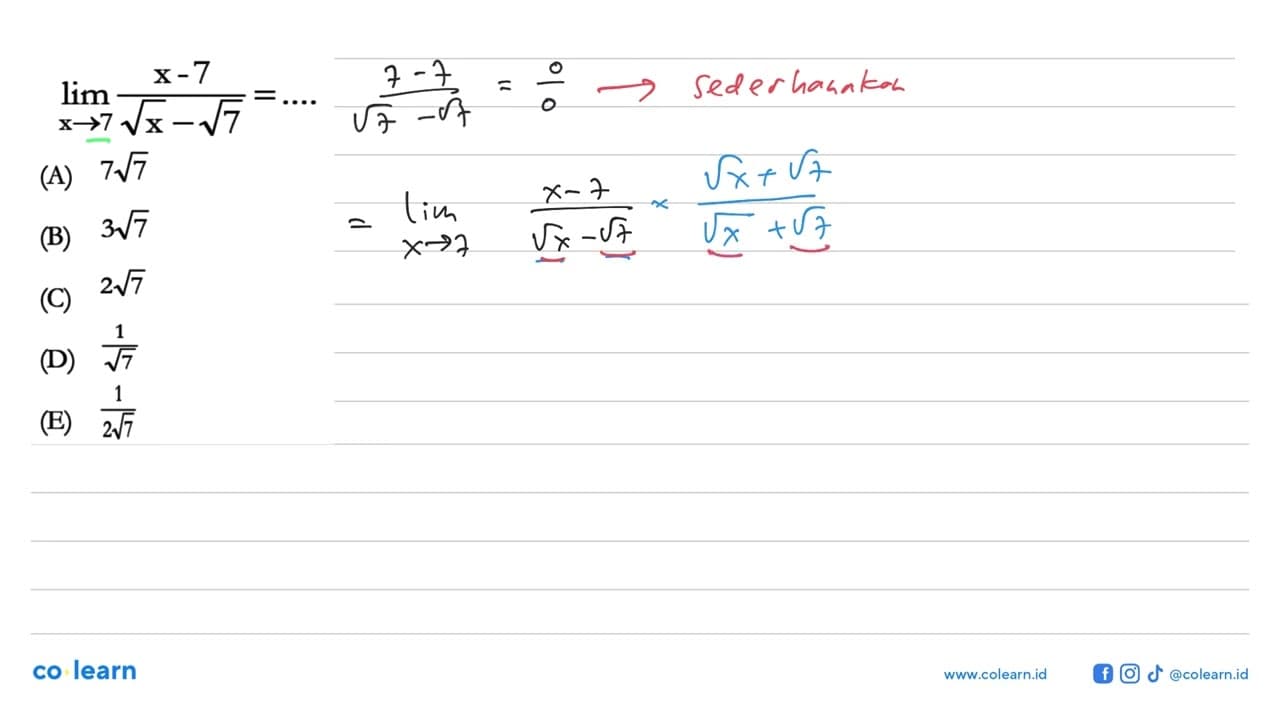 lim x→7 (x - 7)/(√x − √7) = ....
(A) 7√7
(B) 3√7
(C) 2√7
(D) 1/√7
(E) 1/(2√7)
(7 - 7)/(√7 - √7) = 0/0 → sederhanakan
= lim x→7 (x - 7)/(√x - √7) × (√x + √7)/(√x + √7)
co learn
www.colearn.id
@colearn.id